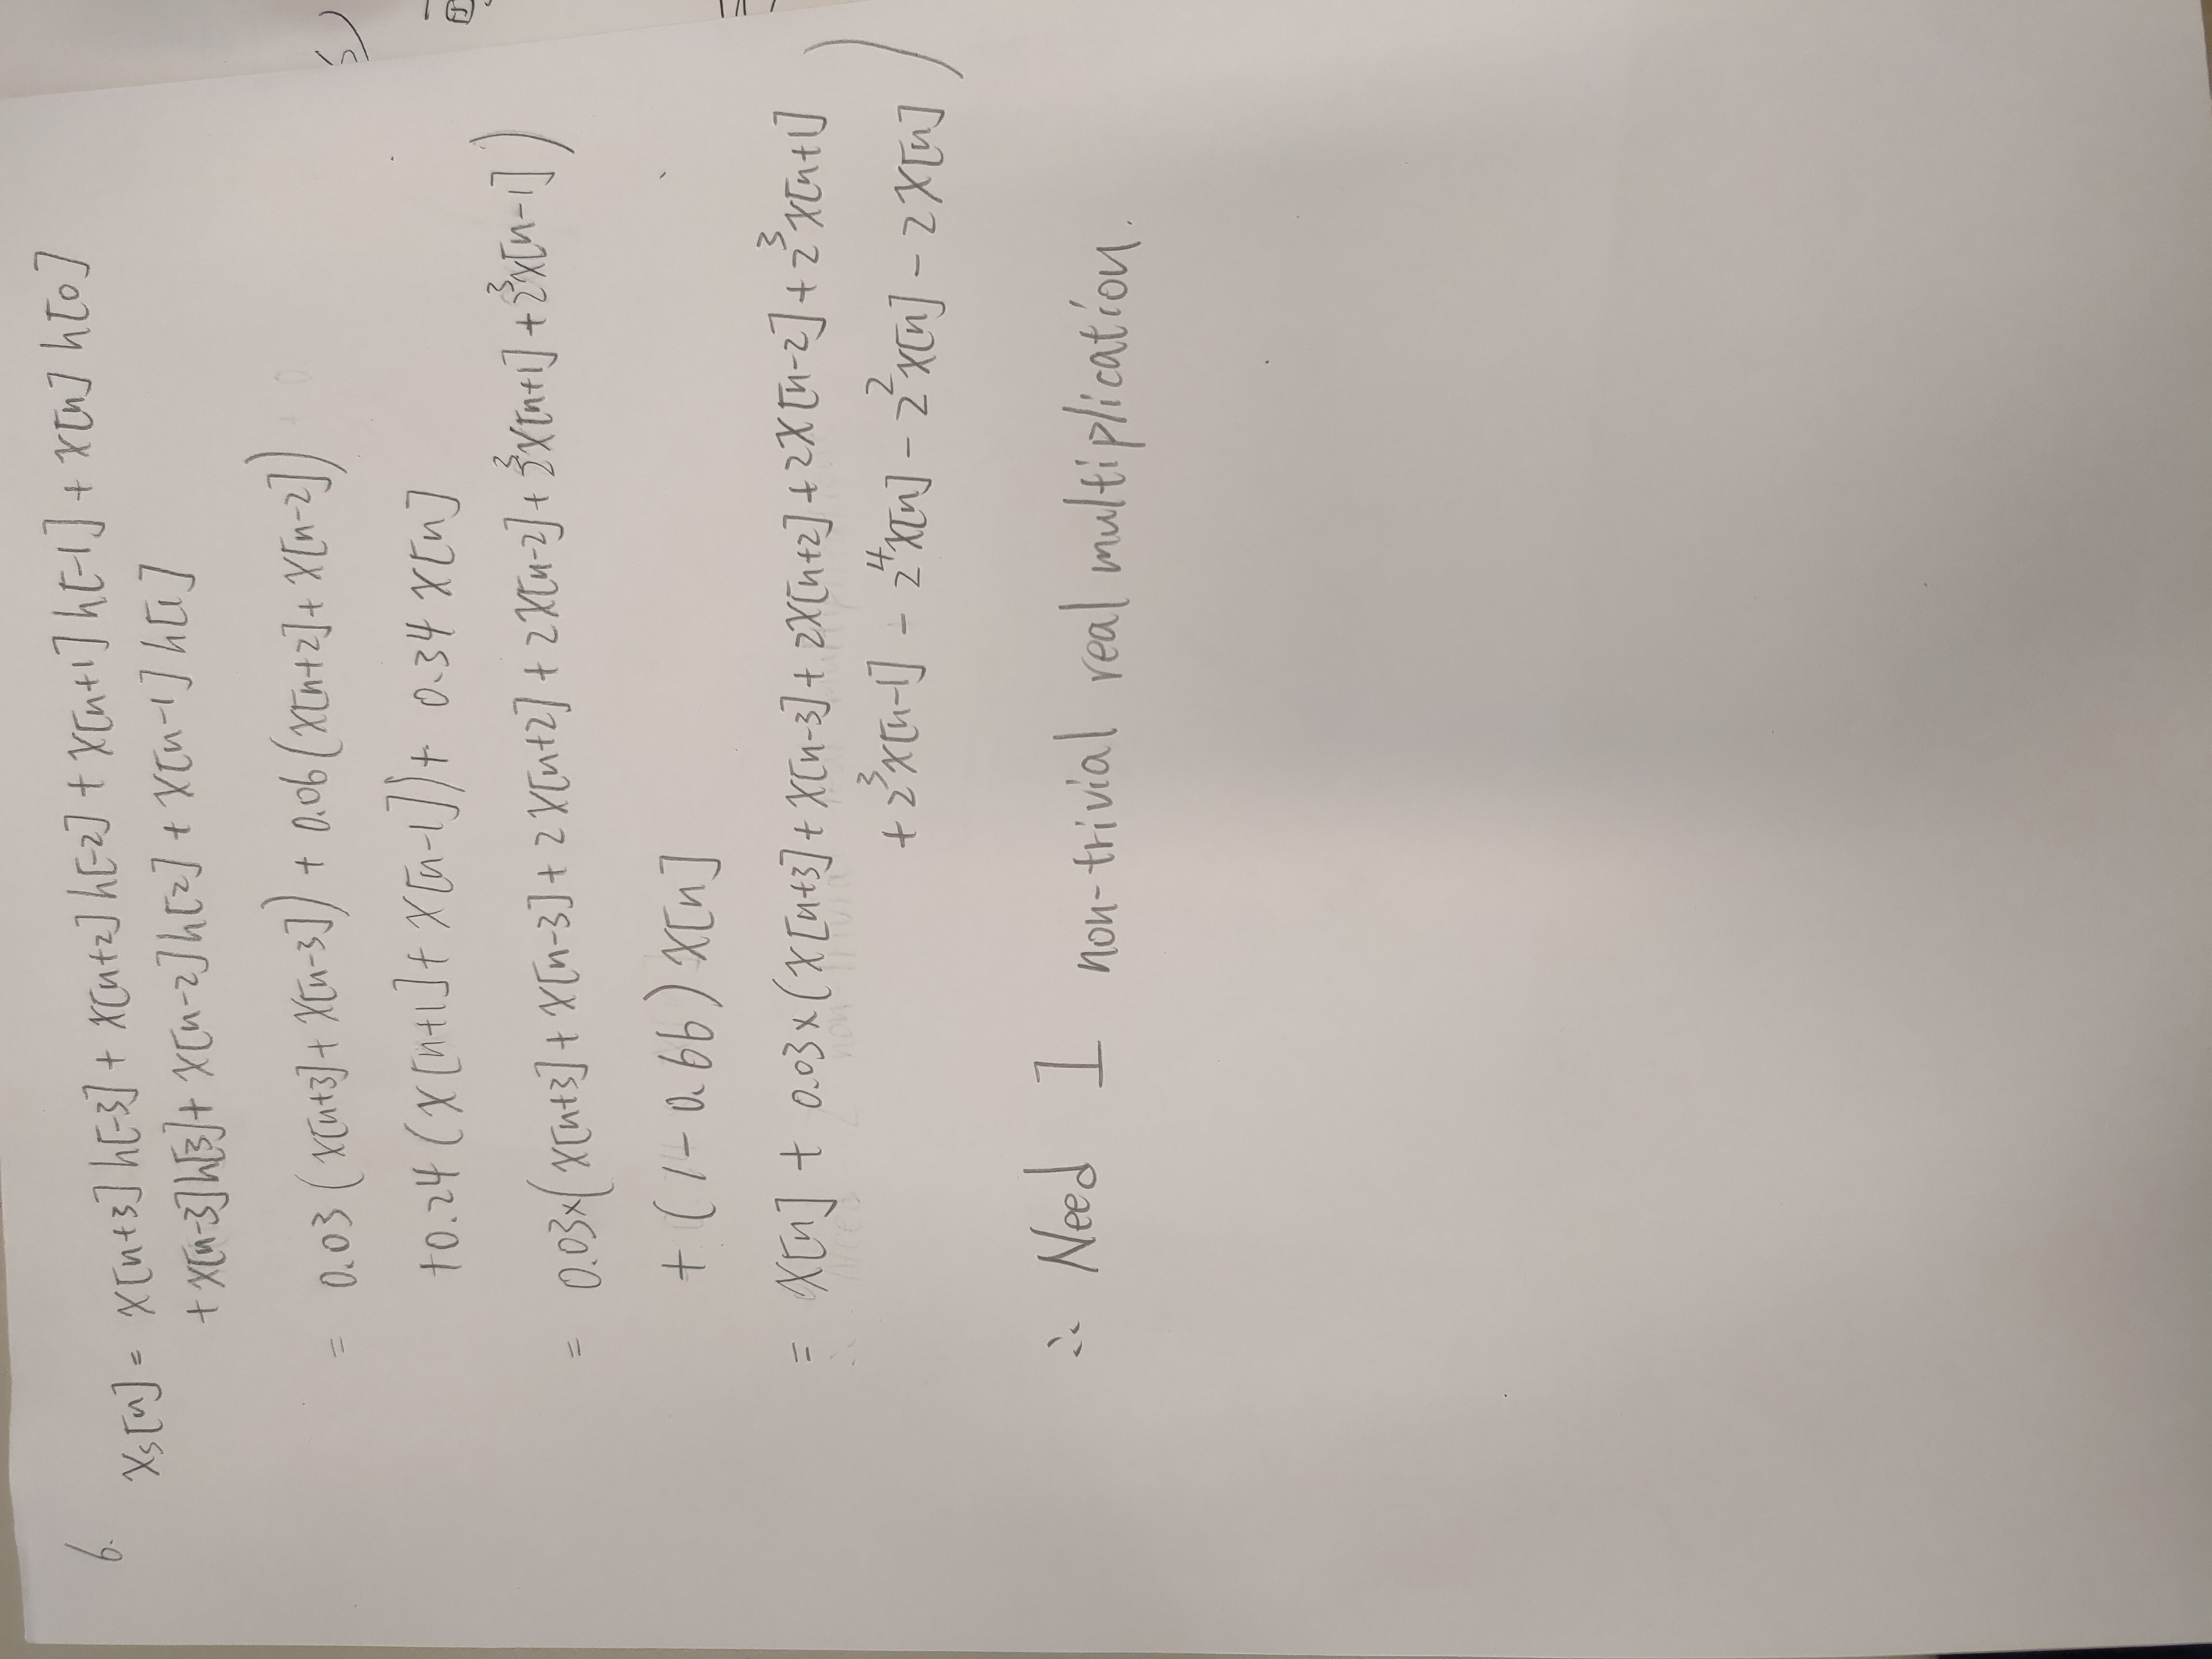 6.
Xs[n] = X[n+3] h[-3] + X[n+2] h[-2] + X[n+1] h[-1] + X[n] h[0]
+ X[n-3] h[3] + X[n-2] h[2] + X[n-1] h[1]
= 0.03 (X[n+3] + X[n-3]) + 0.06 (X[n+2] + X[n-2])
+0.24 (X[n+1] + X[n-1]) + 0.34 X[n]
= 0.03×(X[n+3] + X[n-3] + 2X[n+2] + 2X[n-2] + 2³X[n+1] + 2³X[n-1])
+ (1 - 0.66) X[n]
= X[n] + 0.03×(X[n+3] + X[n-3] + 2X[n+2] + 2X[n-2] + 2³X[n+1]
+ 2³X[n-1] - 2⁴X[n] - 2²X[n] - 2X[n])
∴ Need 1 non-trivial real multiplication.